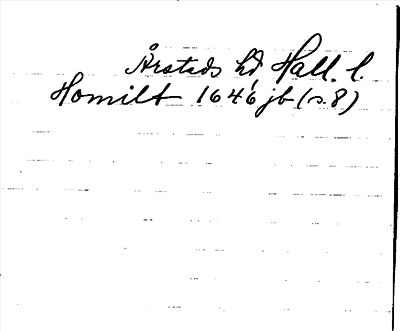 Årstads hd Hall. l.
Homilt 1646 jb (s. 8)